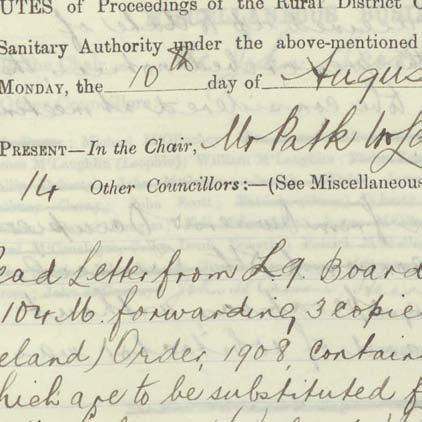 UTES of Proceedings of the Rural District C
Sanitary Authority under the above-mentioned
MONDAY, the 10th day of Augus
PRESENT—In the Chair, Mr Patk
14 Other Councillors:—(See Miscellaneous
ead Letter from L.G. Board
104 M. forwarding 3 copie
eland) Order, 1908, contain
hich are to be substituted f